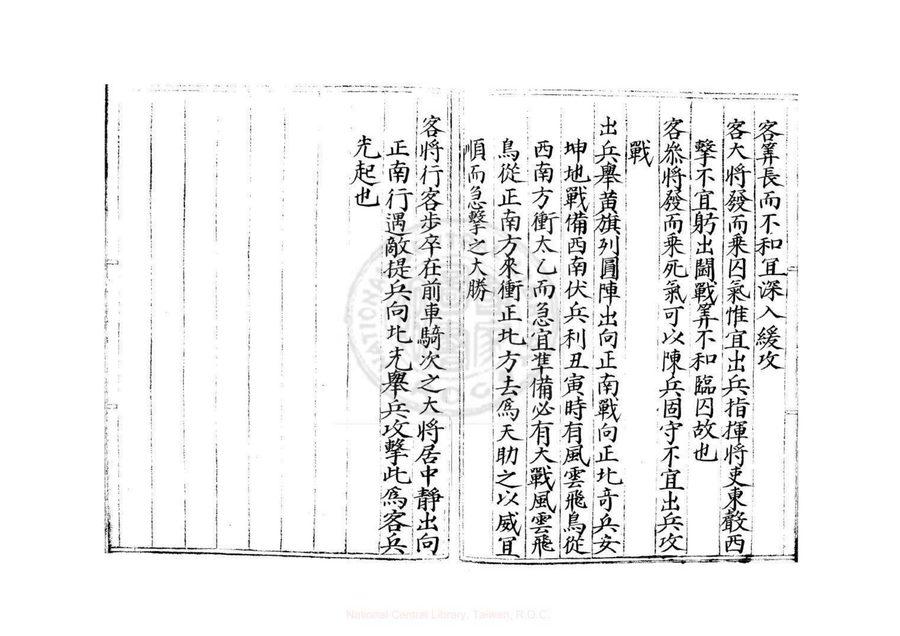 客筭長而不和宜深入緩攻
客大將發而乘囚氣惟宜出兵指揮將吏東敵西
擊不宜躬出鬪戰筭不和臨囚故也
客叅將發而乘死氣可以陳兵固守不宜出兵攻
戰
出兵舉黄旗列圓陣出向正南戰向正北竒兵安
坤地戰備西南伏兵利丑寅時有風雲飛鳥從
西南方衝太乙而急宜準備必有大戰風雲飛
鳥從正南方來衝正北方去爲天助之以威宜
順而急擊之大勝
客將行客步卒在前車騎次之大將居中靜出向
正南行遇敵提兵向北先舉兵攻擊此爲客兵
先起也
National Central Library, Taiwan, R.O.C.